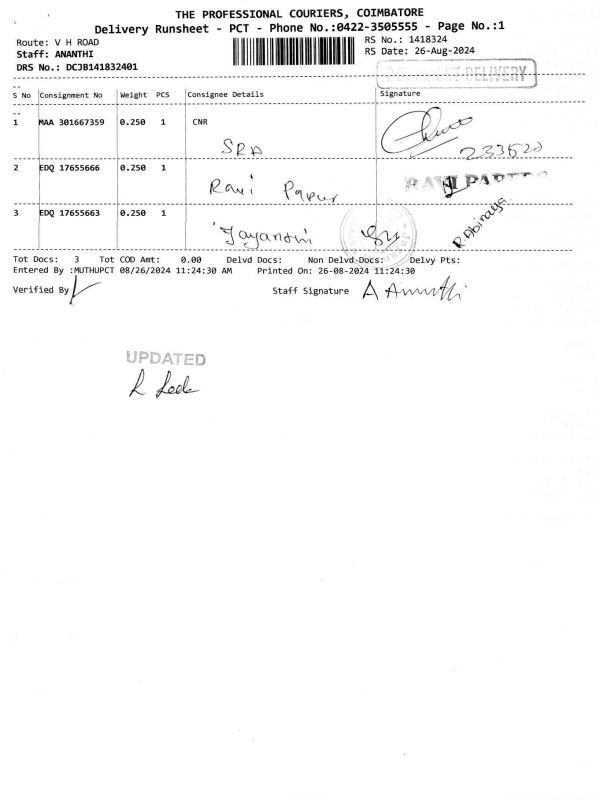 THE PROFESSIONAL COURIERS, COIMBATORE
Delivery Runsheet - PCT - Phone No.:0422-3505555 - Page No.:1
Route: V H ROAD RS No.: 1418324
Staff: ANANTHI RS Date: 26-Aug-2024
DRS No.: DCJB141832401
DELIVERY
S No Consignment No Weight PCS Consignee Details Signature
1 MAA 301667359 0.250 1 CNR
SRA
2 EDQ 17655666 0.250 1
Ravi Papur RAVI PAPERS
3 EDQ 17655663 0.250 1
R.Abinaya
Tot Docs: 3 Tot COD Amt: 0.00 Delvd Docs: Non Delvd Docs: Delvy Pts:
Entered By :MUTHUPCT 08/26/2024 11:24:30 AM Printed On: 26-08-2024 11:24:30
Verified By Staff Signature A Ananthi
UPDATED